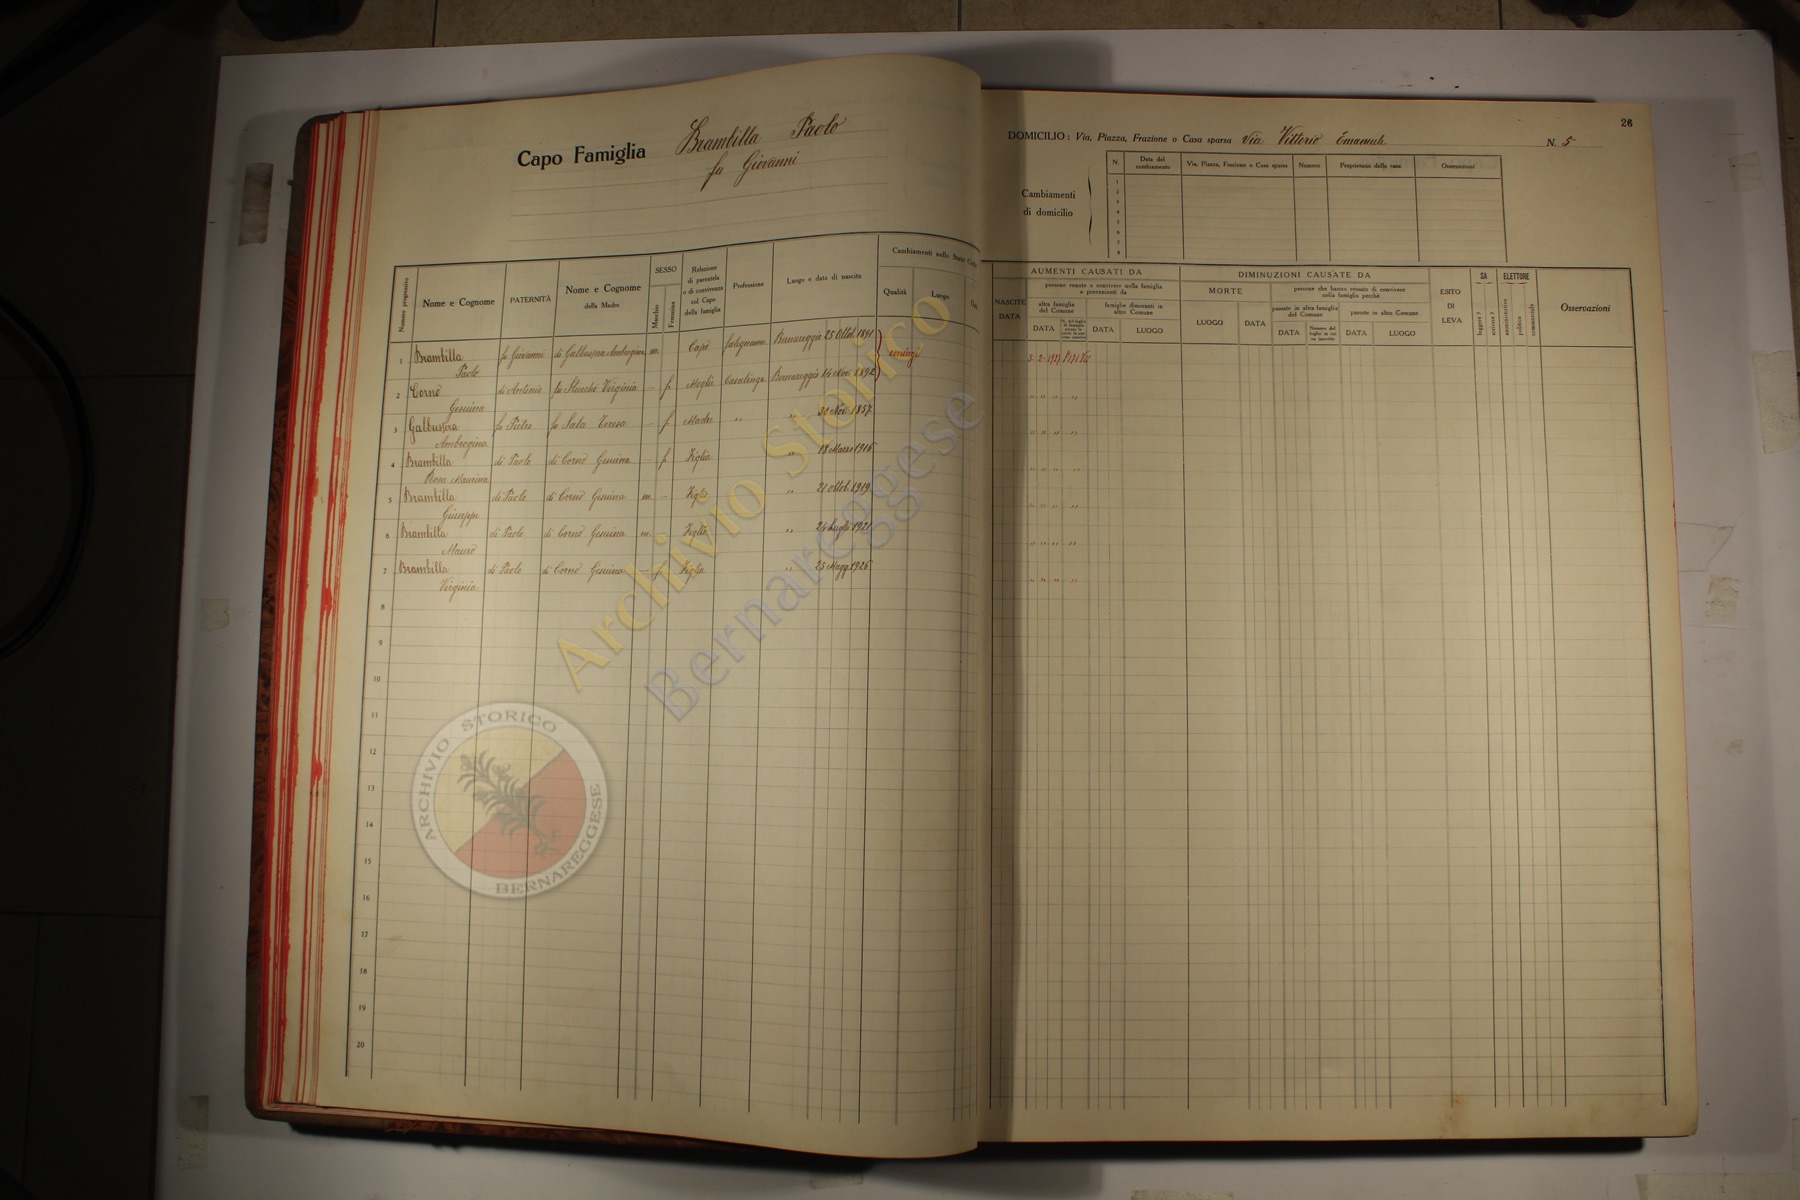 Capo Famiglia Brambilla Paolo
fu Giovanni
26
DOMICILIO: Via, Piazza, Frazione o Casa sparsa Via Vittorio Emanuele N. 5
Cambiamenti
di domicilio
N. Data del cambiamento Via, Piazza, Frazione o Casa sparsa Numero Proprietario della casa Osservazioni
1
2
3
4
5
6
7
8
Numero progressivo
Nome e Cognome
PATERNITÀ
Nome e Cognome
della Madre
SESSO
Maschio
Femmina
Relazione
di parentela
o di convivenza
col Capo
della famiglia
Professione
Luogo e data di nascita
Cambiamenti nello Stato
Qualità
Luogo
NASCITE
DATA
AUMENTI CAUSATI DA
persone venute a convivere nella famiglia
e provenienti da
altra famiglia
del Comune
famiglie dimoranti in
altro Comune
DATA
DATA
LUOGO
DIMINUZIONI CAUSATE DA
MORTE
LUOGO
DATA
persone che hanno cessato di convivere
colla famiglia perchè
passate in altra famiglia
del Comune
passate in altro Comune
DATA
DATA
LUOGO
ESITO
DI
LEVA
SA
leggere?
scrivere?
ELETTORE
amministrativo
politico
commerciale
Osservazioni
1 Brambilla fu Giovanni di Galbusera Ambrogina m. Capo falegname Bernareggio 25 Ottob. 1891 coniugi
Paolo
2 Cornò di Antonio fu Stucchi Virginia — f. Moglie Casalinga Bernareggio 14 Nov. 1892
Gesuina
3 Galbusera fu Pietro fu Sala Teresa — f. Madre " " 30 Nov. 1857
Ambrogina
4 Brambilla di Paolo di Cornò Gesuina — f. Figlia " 18 Marzo 1916
Rosa Maurina
5 Brambilla di Paolo di Cornò Gesuina m. — Figlio " 21 ottob. 1919
Giuseppe
6 Brambilla di Paolo di Cornò Gesuina m. — Figlio " 24 Luglio 1921
Mauro
7 Brambilla di Paolo di Cornò Gesuina — f. Figlia " 25 Magg. 1926
Virginia
8
9
10
11
12
13
14
15
16
17
18
19
20
Archivio Storico
Bernareggese
ARCHIVIO STORICO
BERNAREGGESE